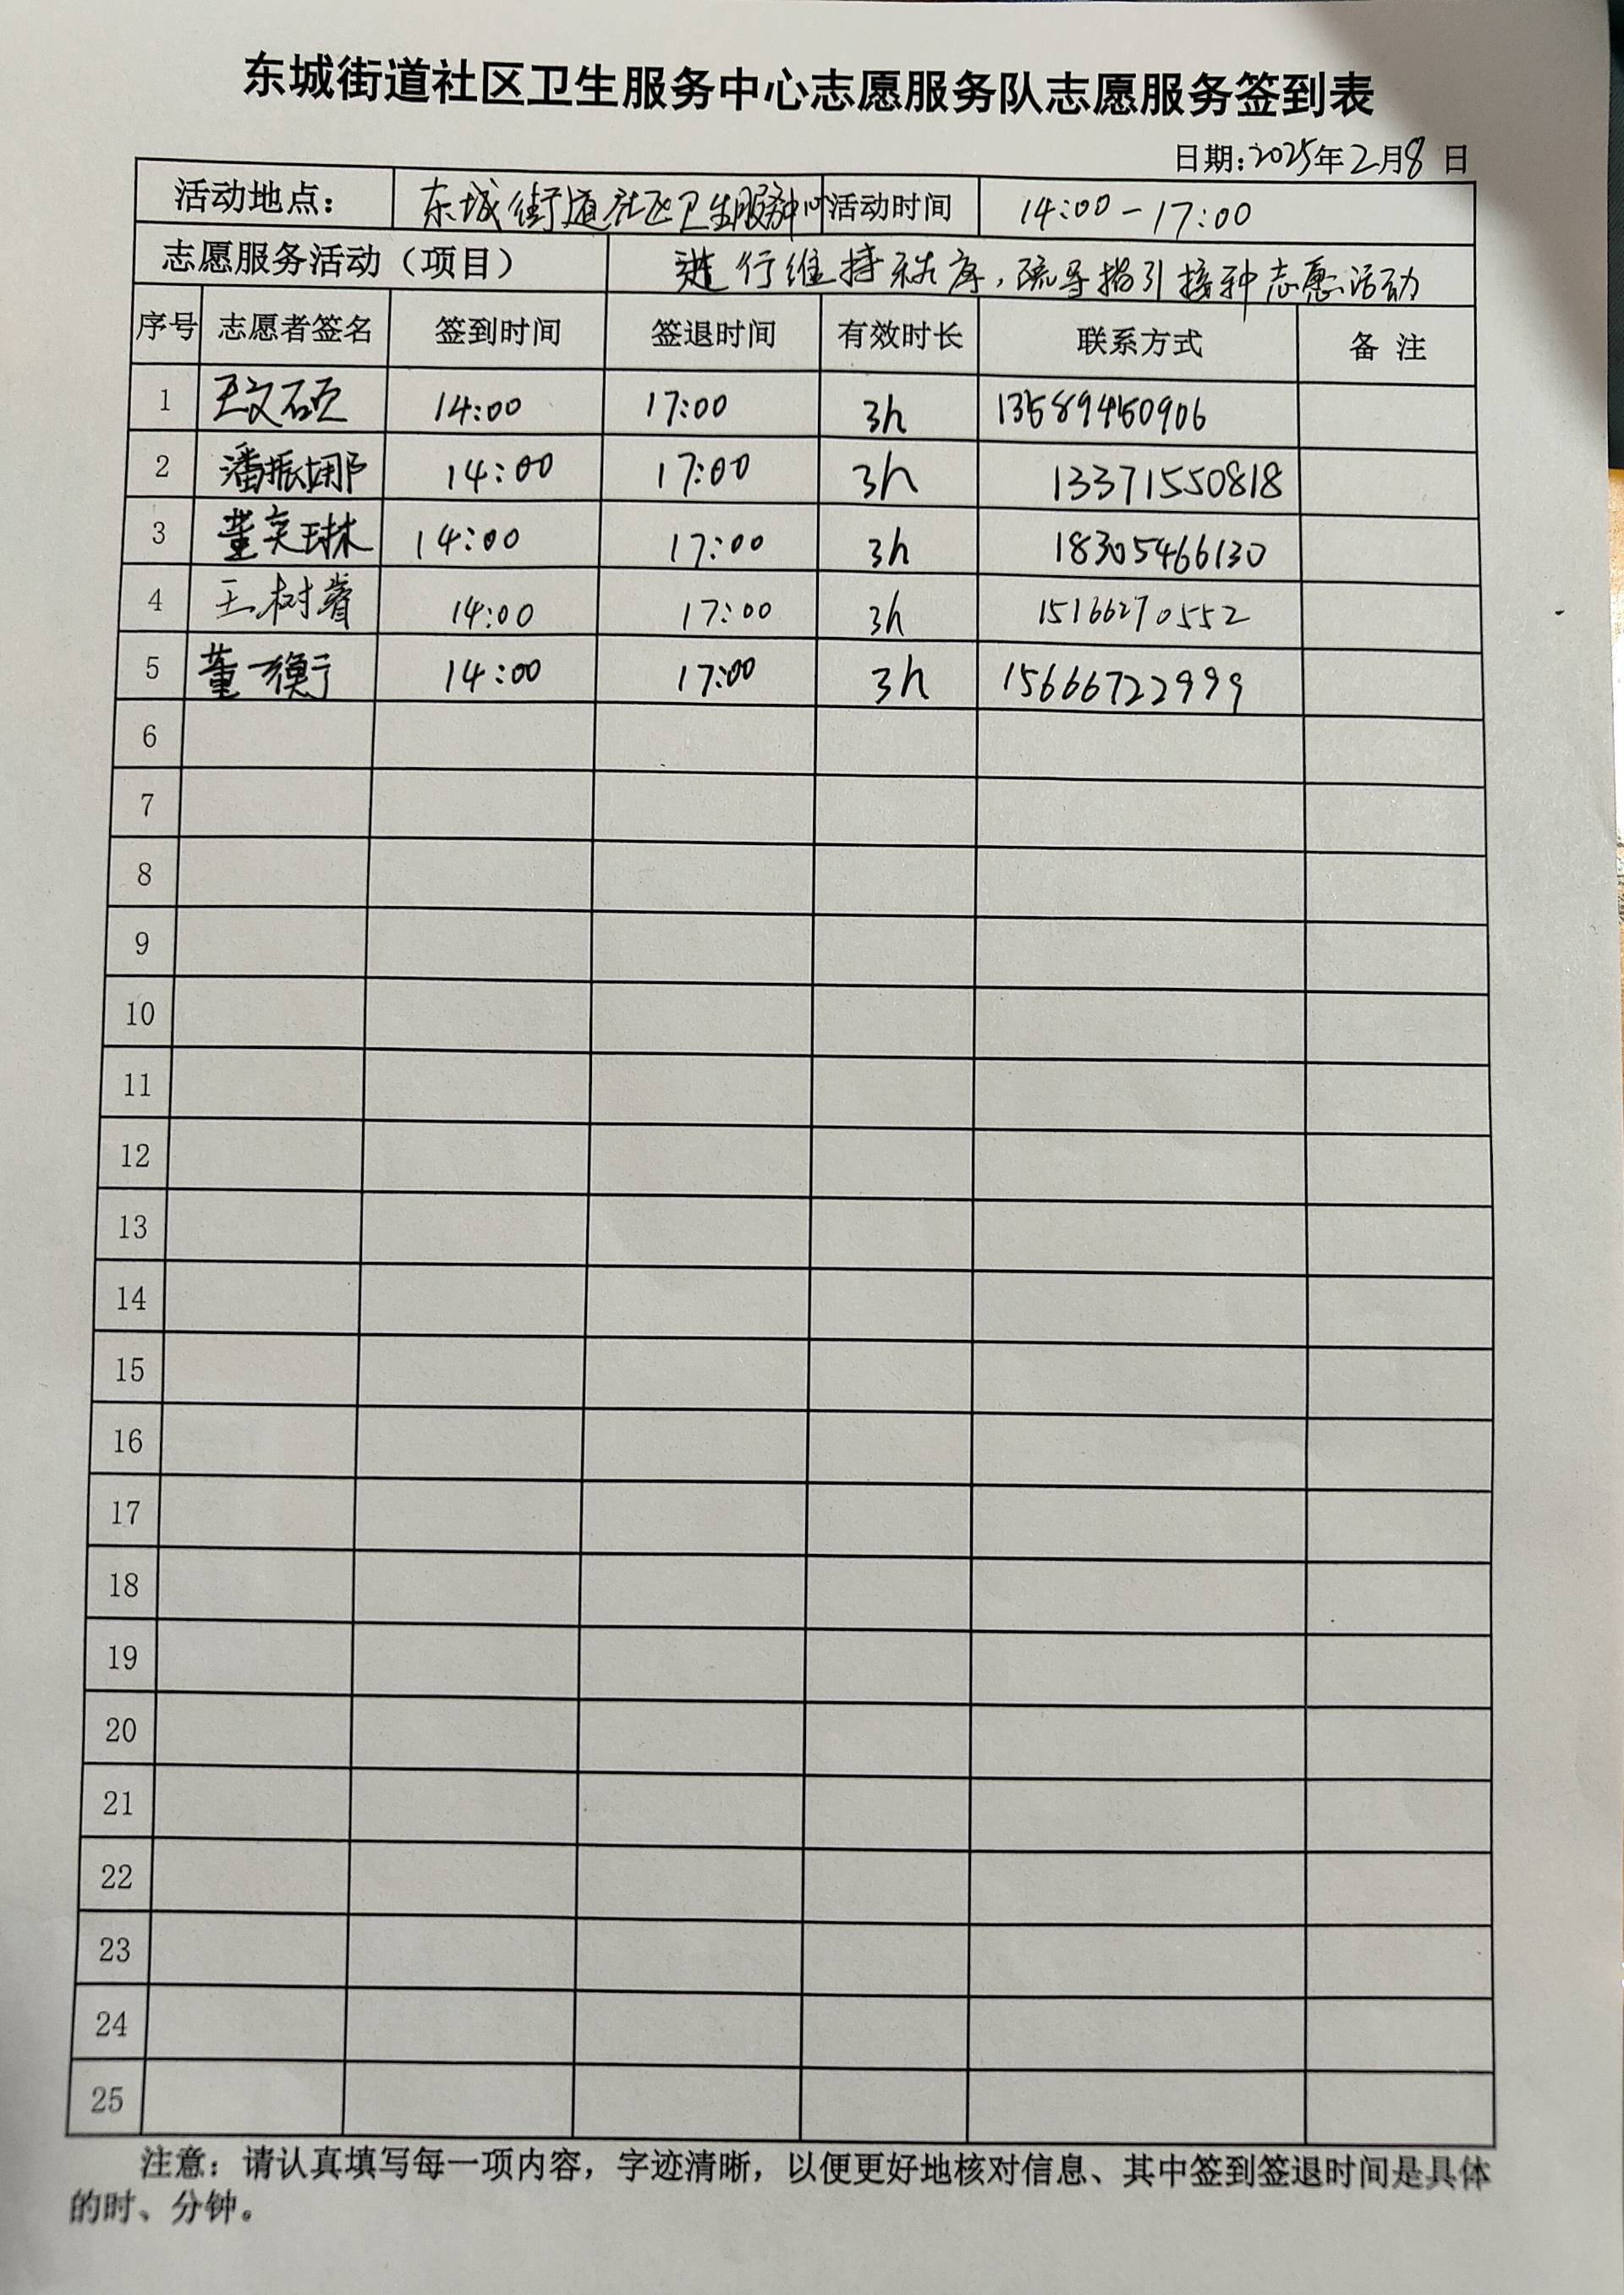 东城街道社区卫生服务中心志愿服务队志愿服务签到表
日期:2025年2月8日
活动地点: 东城街道社区卫生服务中心 活动时间 14:00-17:00
志愿服务活动（项目） 进行维持秩序,疏导指引接种志愿活动
序号 志愿者签名 签到时间 签退时间 有效时长 联系方式 备 注
1 王文硕 14:00 17:00 3h 13589450906
2 潘振娜 14:00 17:00 3h 13371550818
3 董奕琳 14:00 17:00 3h 18305466130
4 王树睿 14:00 17:00 3h 15166270552
5 董一衡 14:00 17:00 3h 15666722999
6
7
8
9
10
11
12
13
14
15
16
17
18
19
20
21
22
23
24
25
注意：请认真填写每一项内容，字迹清晰，以便更好地核对信息、其中签到签退时间是具体
的时、分钟。